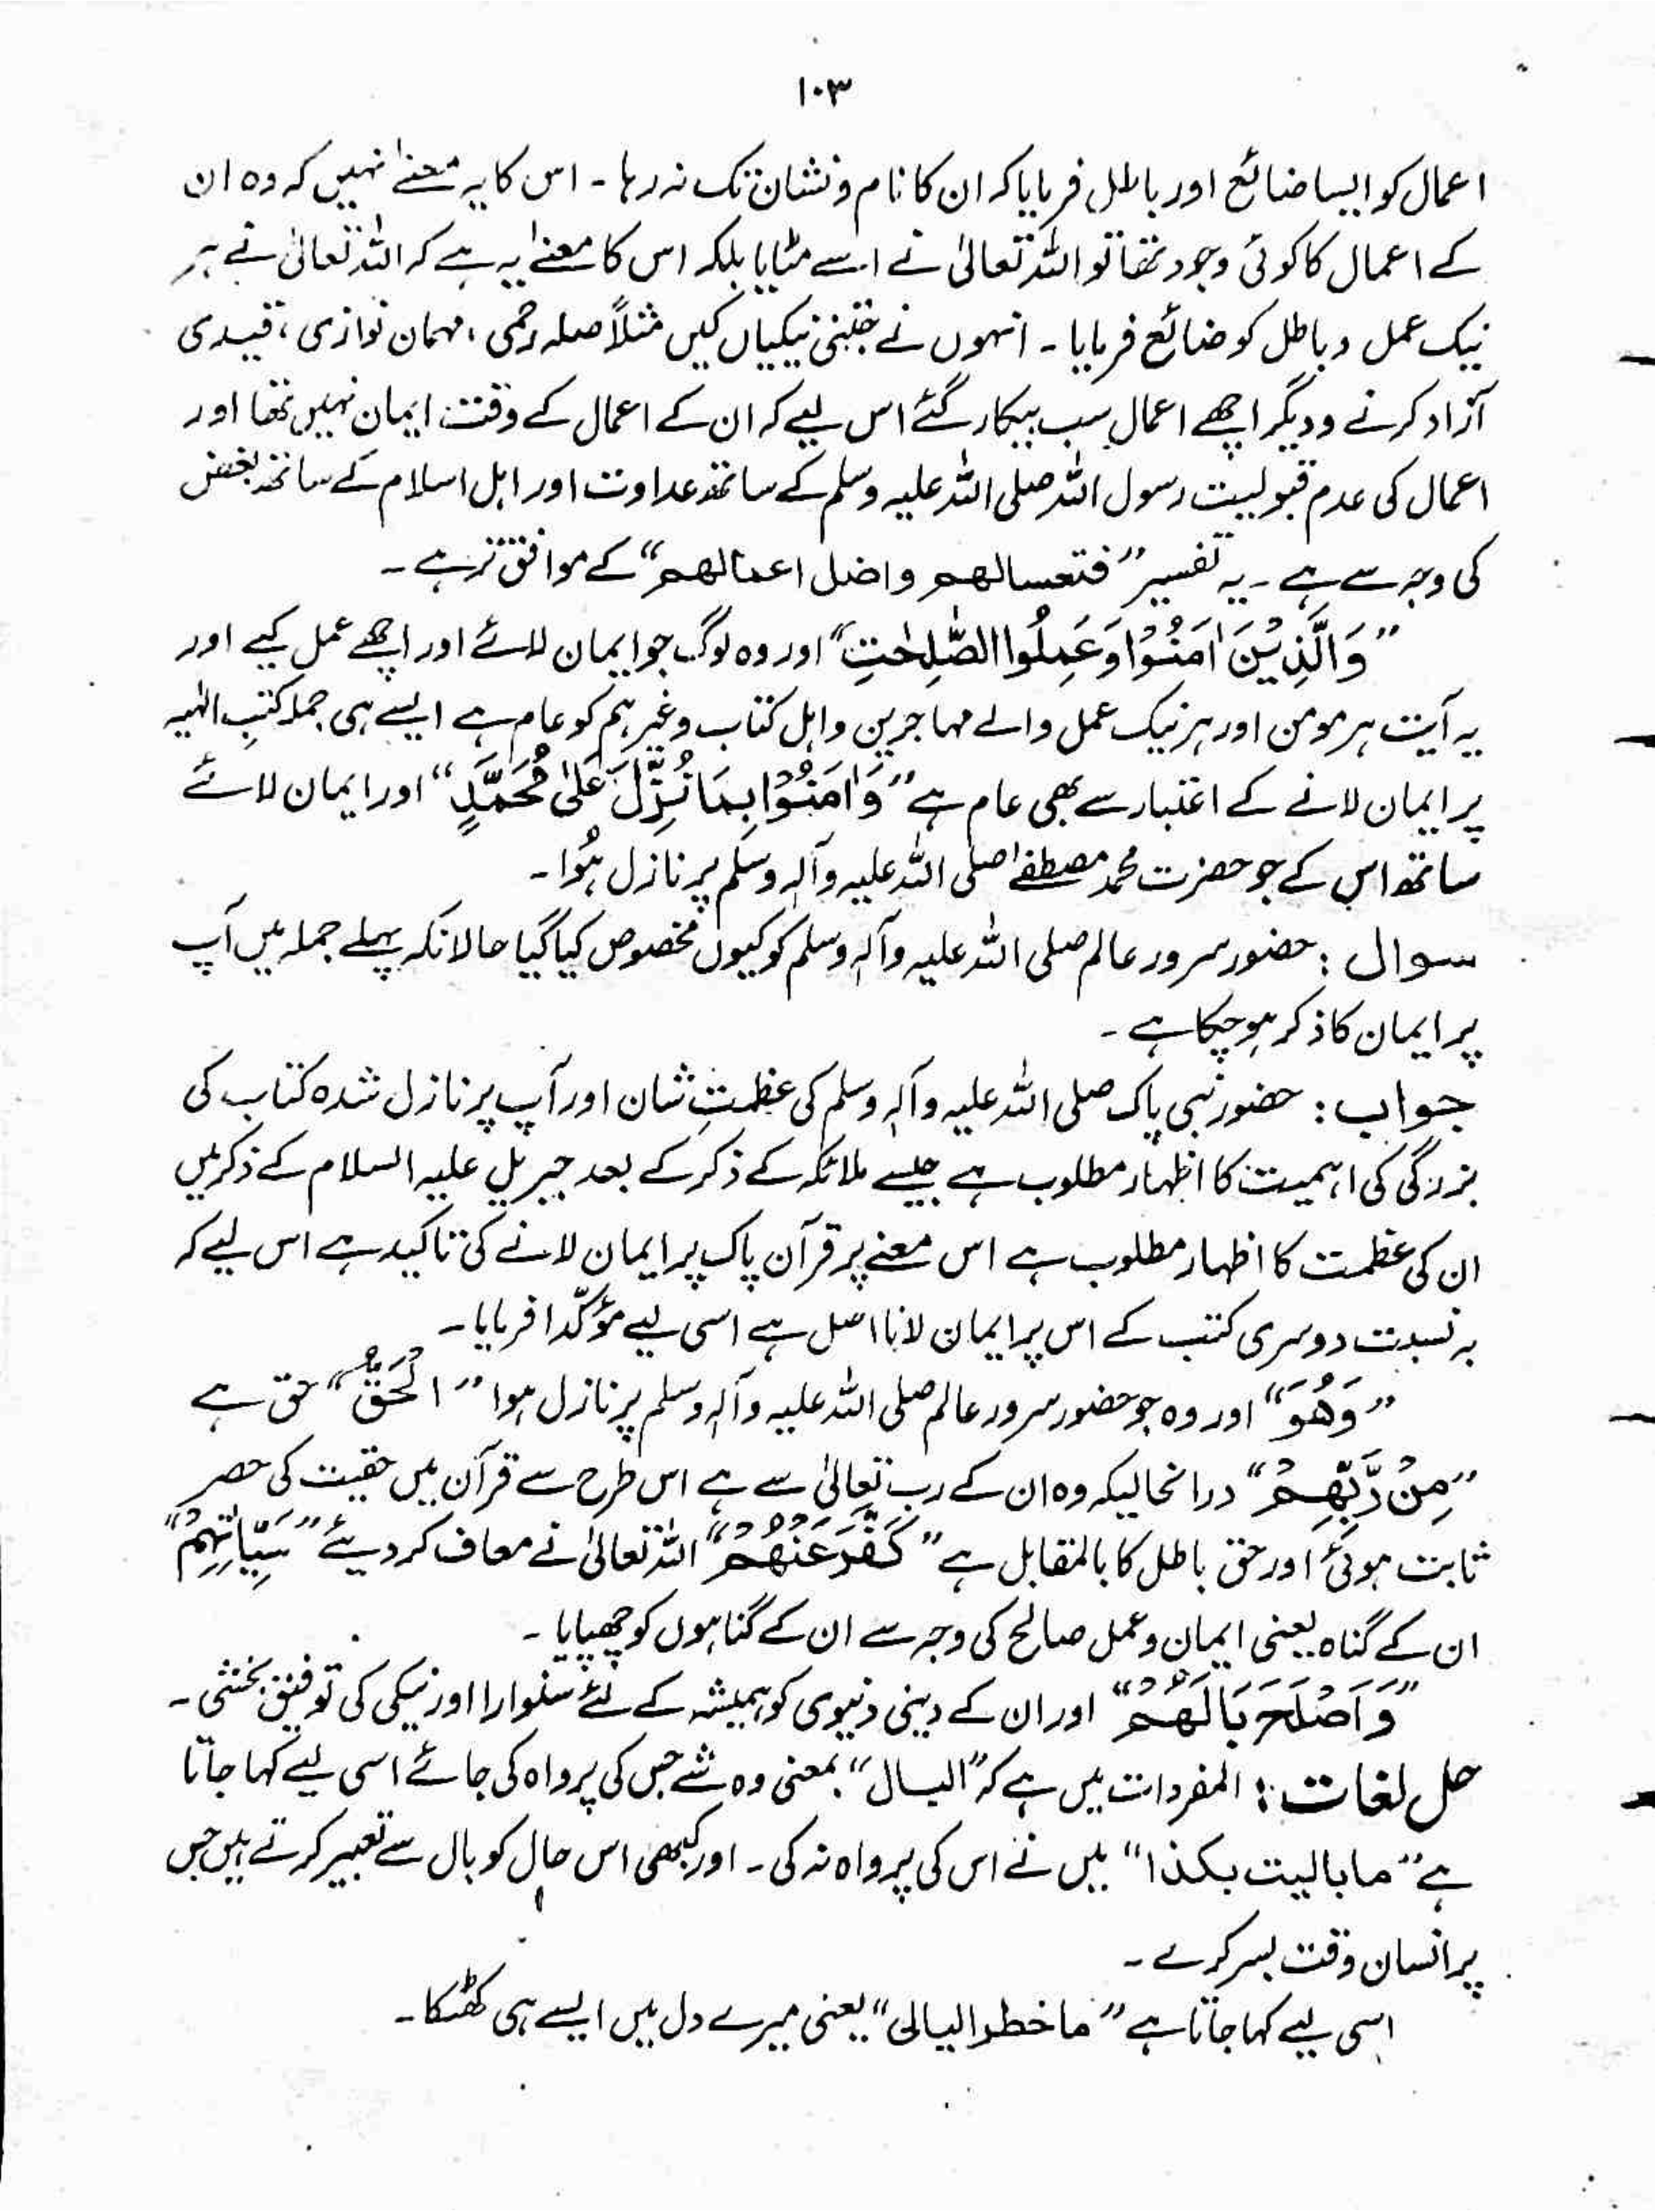 ۱۰۳
اعمال کو ایسا ضائع اور باطل فرمایا کہ ان کا نام و نشان تک نہ رہا ۔ اس کا یہ معنےٰ نہیں کہ وہ ان
کے اعمال کا کوئی وجود تھا تو اللہ تعالیٰ نے اسے مٹایا بلکہ اس کا معنےٰ یہ ہے کہ اللہ تعالیٰ نے ہر
نیک عمل و باطل کو ضائع فرمایا ۔ انہوں نے جتنی نیکیاں کیں مثلاً صلہ رحمی ، مہمان نوازی ، قیدی
آزاد کرنے و دیگر اچھے اعمال سب بیکار گئے اس لیے کہ ان کے اعمال کے وقت ایمان نہیں تھا اور
اعمال کی عدم قبولیت رسول اللہ صلی اللہ علیہ وسلم کے ساتھ عداوت اور اہل اسلام کے ساتھ بغض
کی وجہ سے ہے ۔ یہ تفسیر ”فتعسالھم واضل اعمالھم“ کے موافق تر ہے ۔
”وَالَّذِیْنَ اٰمَنُوْا وَعَمِلُوا الصّٰلِحٰتِ“ اور وہ لوگ جو ایمان لائے اور اچھے عمل کیے اور
یہ آیت ہر مومن اور ہر نیک عمل والے مہاجرین و اہل کتاب و غیرہم کو عام ہے ایسے ہی جملہ کتبِ الٰہیہ
پر ایمان لانے کے اعتبار سے بھی عام ہے ”وَاٰمَنُوْا بِمَا نُزِّلَ عَلٰی مُحَمَّدٍ“ اور ایمان لائے
ساتھ اس کے جو حضرت محمد مصطفےٰ صلی اللہ علیہ وآلہٖ وسلم پر نازل ہُوا ۔
سوال : حضور سرور عالم صلی اللہ علیہ وآلہٖ وسلم کو کیوں مخصوص کیا گیا حالانکہ پہلے جملہ میں آپ
پر ایمان کا ذکر ہو چکا ہے ۔
جواب : حضور نبی پاک صلی اللہ علیہ وآلہٖ وسلم کی عظمتِ شان اور آپ پر نازل شدہ کتاب کی
بزرگی کی اہمیت کا اظہار مطلوب ہے جیسے ملائکہ کے ذکر کے بعد جبریل علیہ السلام کے ذکر میں
ان کی عظمت کا اظہار مطلوب ہے اس معنے پر قرآن پاک پر ایمان لانے کی تاکید ہے اس لیے کہ
بہ نسبت دوسری کتب کے اس پر ایمان لانا اصل ہے اسی لیے مؤکّدا فرمایا ۔
”وَھُوَ“ اور وہ جو حضور سرور عالم صلی اللہ علیہ وآلہٖ وسلم پر نازل ہوا ”الْحَقُّ“ حق ہے
”مِنْ رَّبِّھِمْ“ درانحالیکہ وہ ان کے رب تعالیٰ سے ہے اس طرح سے قرآن میں حقیت کی حصر
ثابت ہوئی اور حق باطل کا بالمقابل ہے ”کَفَّرَ عَنْھُمْ“ اللہ تعالیٰ نے معاف کر دیئے ”سَیِّاٰتِہِمْ“
ان کے گناہ یعنی ایمان و عمل صالح کی وجہ سے ان کے گناہوں کو چھپایا ۔
”وَاَصْلَحَ بَالَھُمْ“ اور ان کے دینی دنیوی کو ہمیشہ کے لئے سنوارا اور نیکی کی توفیق بخشی ۔
حل لغات : المفردات میں ہے کہ ”البال“ بمعنی وہ شے جس کی پرواہ کی جائے اسی لیے کہا جاتا
ہے ”ما بالیت بکذا“ میں نے اس کی پرواہ نہ کی ۔ اور کبھی اس حال کو بال سے تعبیر کرتے ہیں جس
پر انسان وقت بسر کرے ۔
اسی لیے کہا جاتا ہے ”ما خطر البالی“ یعنی میرے دل میں ایسے ہی کھٹکا ۔